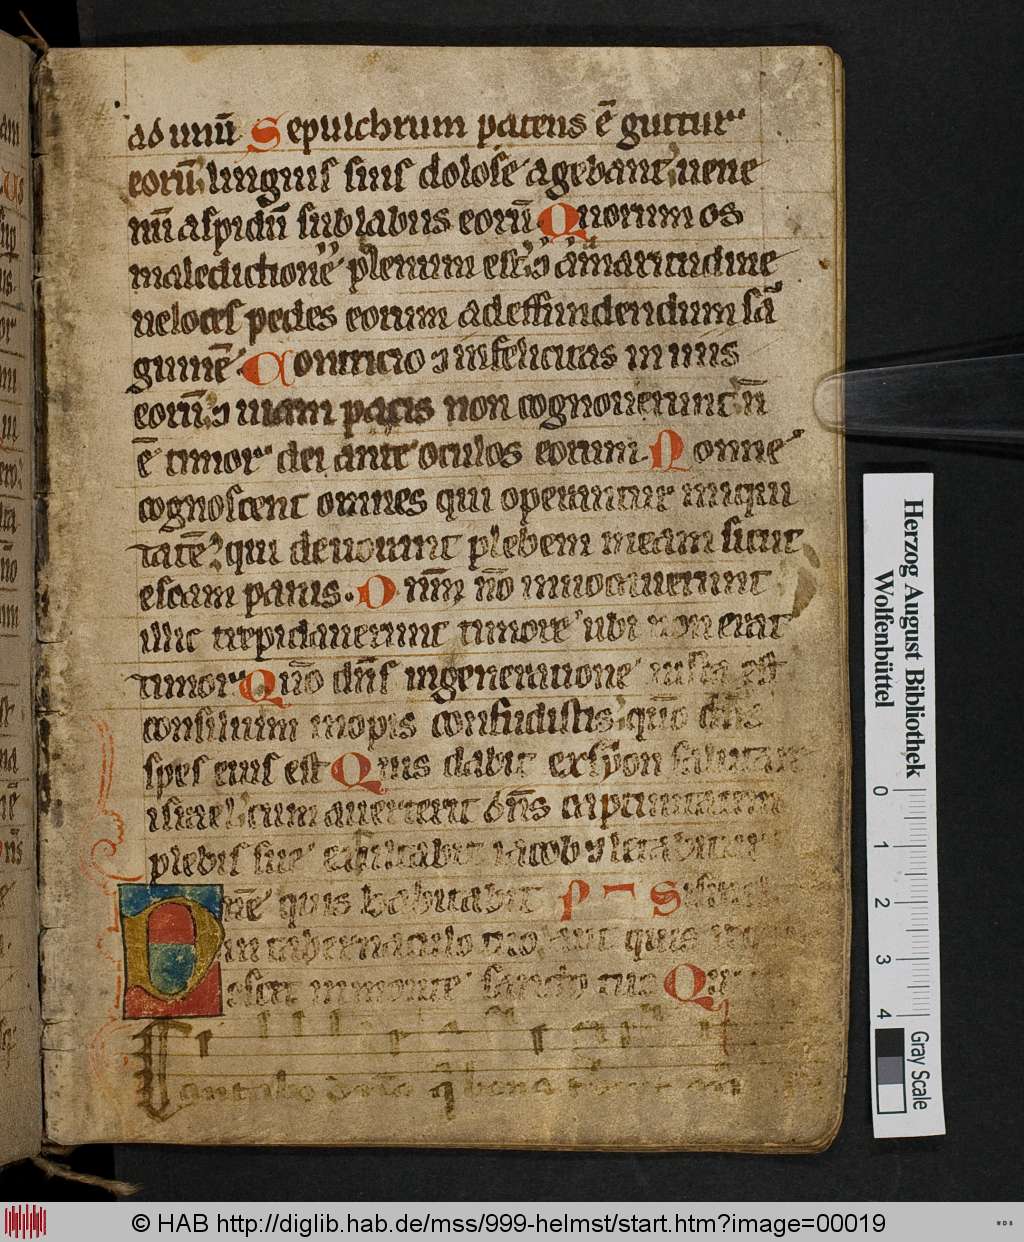 ad unū Sepulchrum patens ē guttur
eorū linguis suis dolose agebant uene
nū aspidū sub labiis eorū Quorum os
maledictione plenum est ⁊ amaritudine
ueloces pedes eorum ad effundendum sā
guinē Contricio ⁊ infelicitas in uiis
eorū ⁊ uiam pacis non cognouerunt n̄
ē timor dei ante oculos eorum. Nonne
cognoscent omnes qui operantur iniqui
tatē qui deuorant plebem meam sicut
escam panis. Dnm̄ nō inuocauerunt
illic trepidauerunt timore ubi non erat
timor Quō dn̄s in generatione iusta est
consilium inopis confudistis quō dn̄s
spes eius est Quis dabit ex syon salutare
israel cum auerterit dn̄s captiuitatem
plebis sue exultabit iacob ⁊ letabitur
Dn̄e quis habitabit
in tabernaculo tuo aut quis
escet in monte sancto tuo Qui
Cantabo domīo bona
Herzog August Bibliothek
Wolfenbüttel
0 1 2 3 4
Gray Scale
© HAB http://diglib.hab.de/mss/999-helmst/start.htm?image=00019